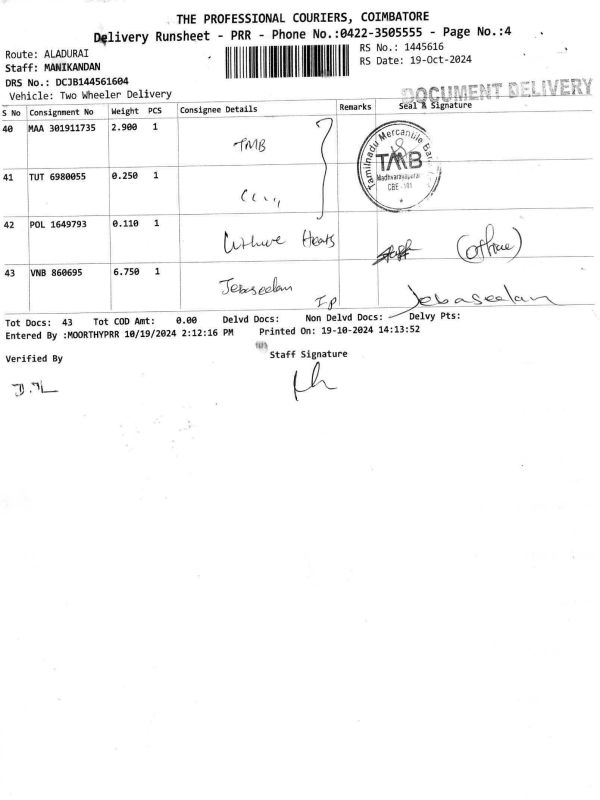 THE PROFESSIONAL COURIERS, COIMBATORE
Delivery Runsheet - PRR - Phone No.:0422-3505555 - Page No.:4
Route: ALADURAI
RS No.: 1445616
Staff: MANIKANDAN
RS Date: 19-Oct-2024
DRS No.: DCJB144561604
Vehicle: Two Wheeler Delivery
DOCUMENT DELIVERY
S No Consignment No Weight PCS Consignee Details Remarks Seal & Signature
40 MAA 301911735 2.900 1 TMB
Tamilnadu Mercantile Bank
TMB
Madhvarayapuram
CBE - 101
41 TUT 6980055 0.250 1
42 POL 1649793 0.110 1 Hears (office)
43 VNB 860695 6.750 1 Jebaseelan Jebaseelan
Tot Docs: 43 Tot COD Amt: 0.00 Delvd Docs: Non Delvd Docs: Delvy Pts:
Entered By :MOORTHYPRR 10/19/2024 2:12:16 PM Printed On: 19-10-2024 14:13:52
Verified By Staff Signature